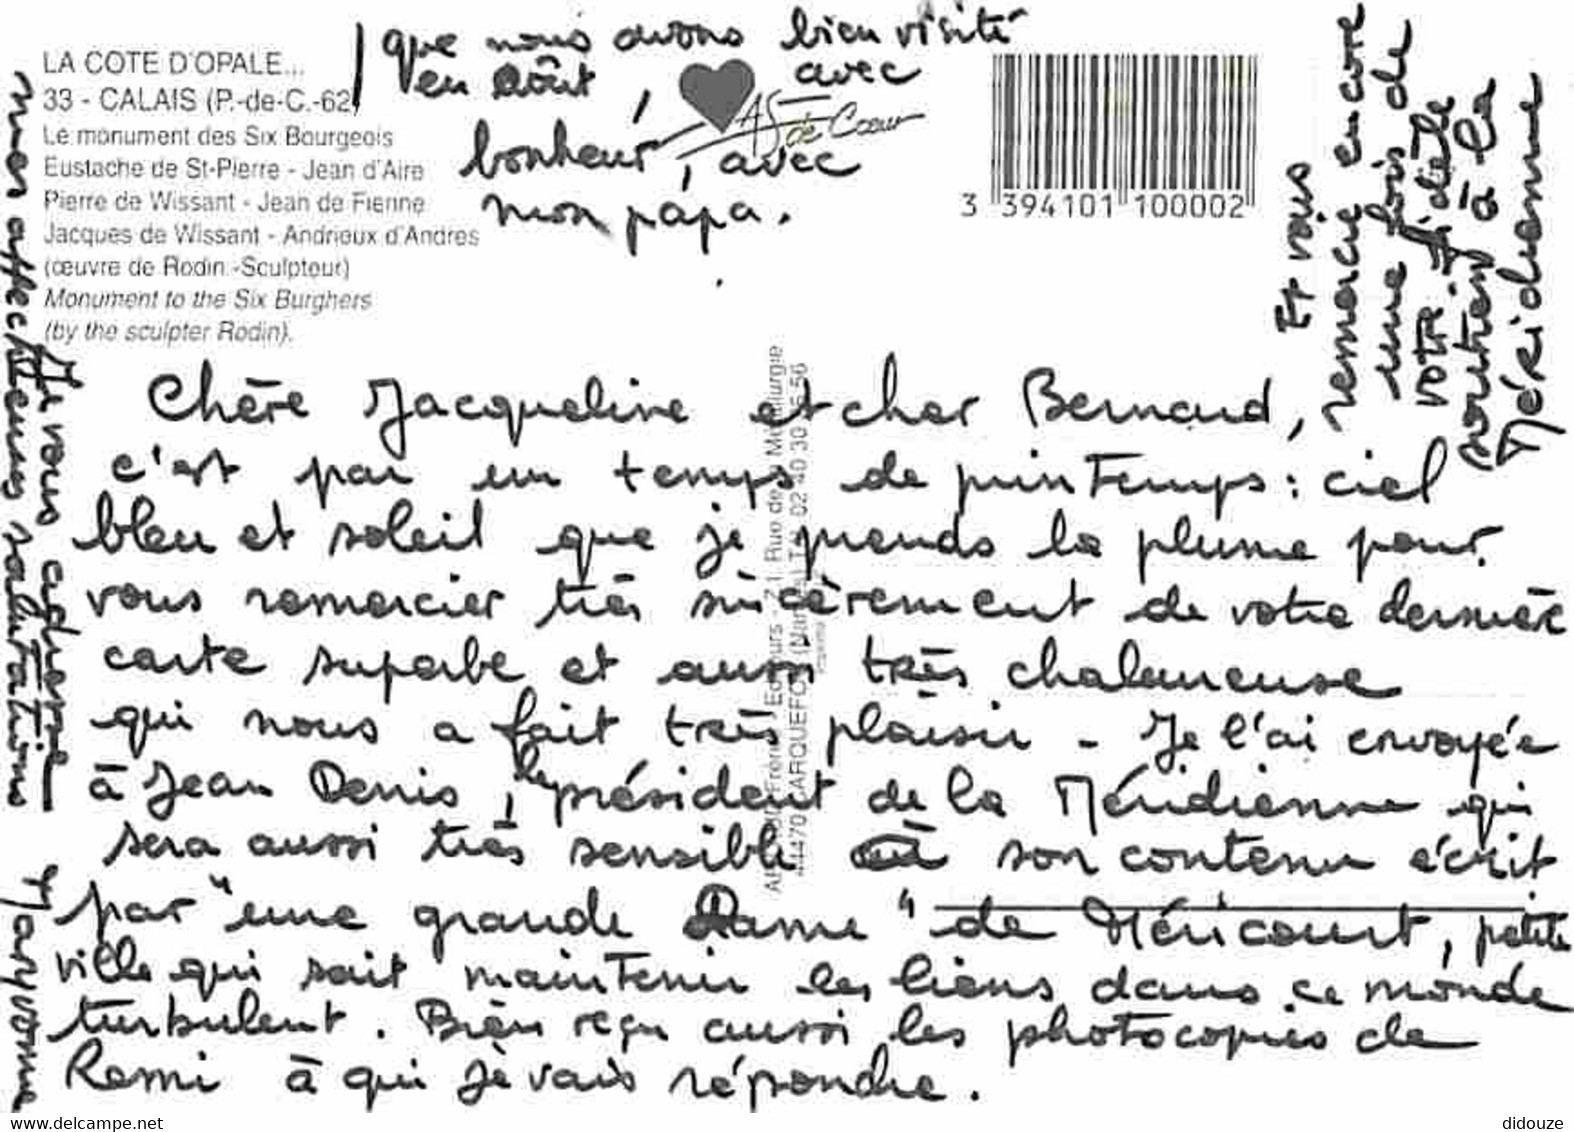 LA COTE D'OPALE...
33 - CALAIS (P.-de-C.-62)
Le monument des Six Bourgeois
Eustache de St-Pierre - Jean d'Aire
Pierre de Wissant - Jean de Fienne
Jacques de Wissant - Andrieux d'Andres
(œuvre de Rodin -Sculpteur)
Monument to the Six Burghers
(by the sculpter Rodin).
que nous avons bien visité
en Août, avec
bonheur, avec
mon papa.
AS de Cœur
3 394101 100002
Chère Jacqueline et cher Bernard,
c'est par un temps de printemps : ciel
bleu et soleil que je prends la plume pour
vous remercier très sincèrement de votre dernière
carte superbe et aussi très chaleureuse
qui nous a fait très plaisir - Je l'ai envoyée
à Jean Denis, le président de la Méridienne qui
sera aussi très sensible à son contenu écrit
par "une grande Dame" de Méricourt, petite
ville qui sait maintenir les liens dans ce monde
turbulent. Bien reçu aussi les photocopies de
Remi à qui je vais répondre.
Et vous
remercie encore
une fois de
votre fidèle
soutien à la
Méridienne
Je vous adresse
mes affectueuses salutations
Maryvonne
Editeurs - Z.I. Rue de la Métallurgie
44470 CARQUEFOU Tél. 02 40 30
delcampe.net
didouze